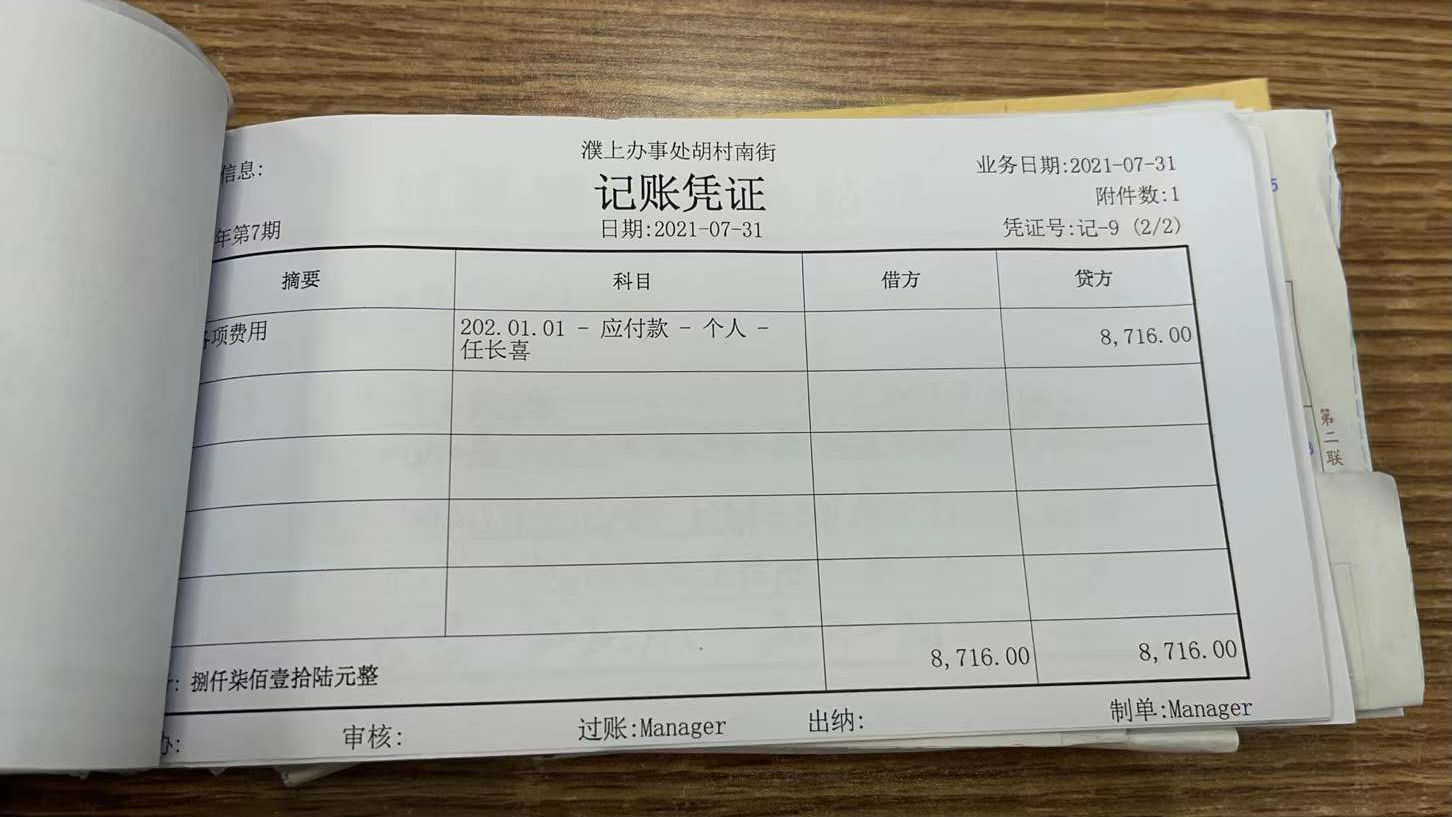 濮上办事处胡村南街
信息:
业务日期:2021-07-31
记账凭证
附件数:1
年第7期
日期:2021-07-31
凭证号:记-9 (2/2)
摘要 科目 借方 贷方
项费用 202.01.01 - 应付款 - 个人 - 8,716.00
任长喜
: 捌仟柒佰壹拾陆元整 8,716.00 8,716.00
: 审核: 过账:Manager 出纳: 制单:Manager
第二联